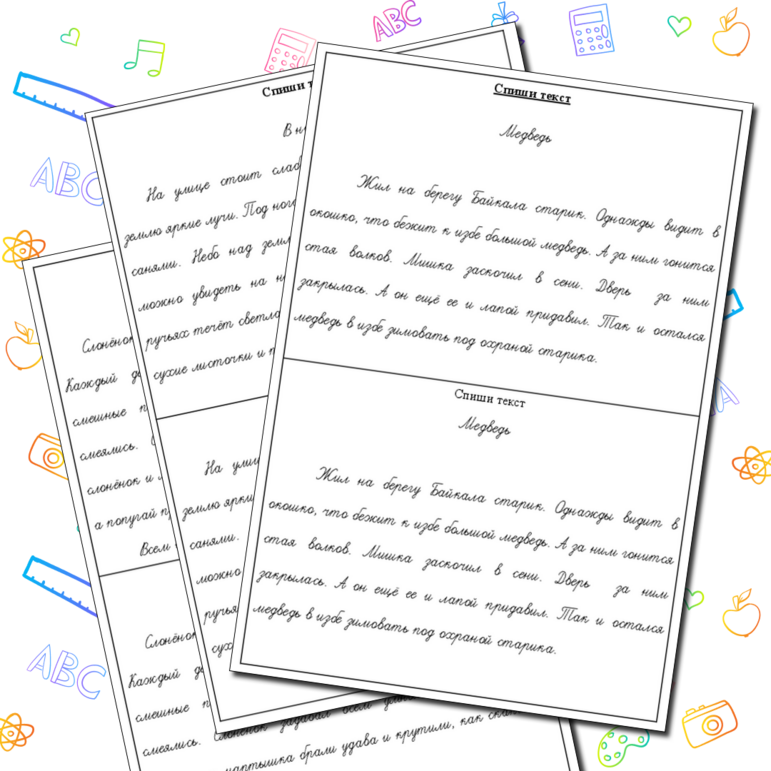 ABC
Спиши текст
Медведь
Жил на берегу Байкала старик. Однажды видит в
окошко, что бежит к избе большой медведь. А за ним гонится
стая волков. Мишка заскочил в сени. Дверь за ним
закрылась. А он ещё ее и лапой придавил. Так и остался
медведь в избе зимовать под охраной старика.
Спиши текст
Медведь
Жил на берегу Байкала старик. Однажды видит в
окошко, что бежит к избе большой медведь. А за ним гонится
стая волков. Мишка заскочил в сени. Дверь за ним
закрылась. А он ещё ее и лапой придавил. Так и остался
медведь в избе зимовать под охраной старика.
Спиши
На улице стоит
землю яркие лучи. Под
санями. Небо над
можно увидеть на
ручьях течёт
сухие листочки и
На
землю
санями.
можно
ABC
Каждый
смешные
смеялись.
слонёнок и
а попугай
Всем
Каждый
смешные
смеялись. Слонёнок задавал всем
мартышка брали удава и крутили, как
ABC